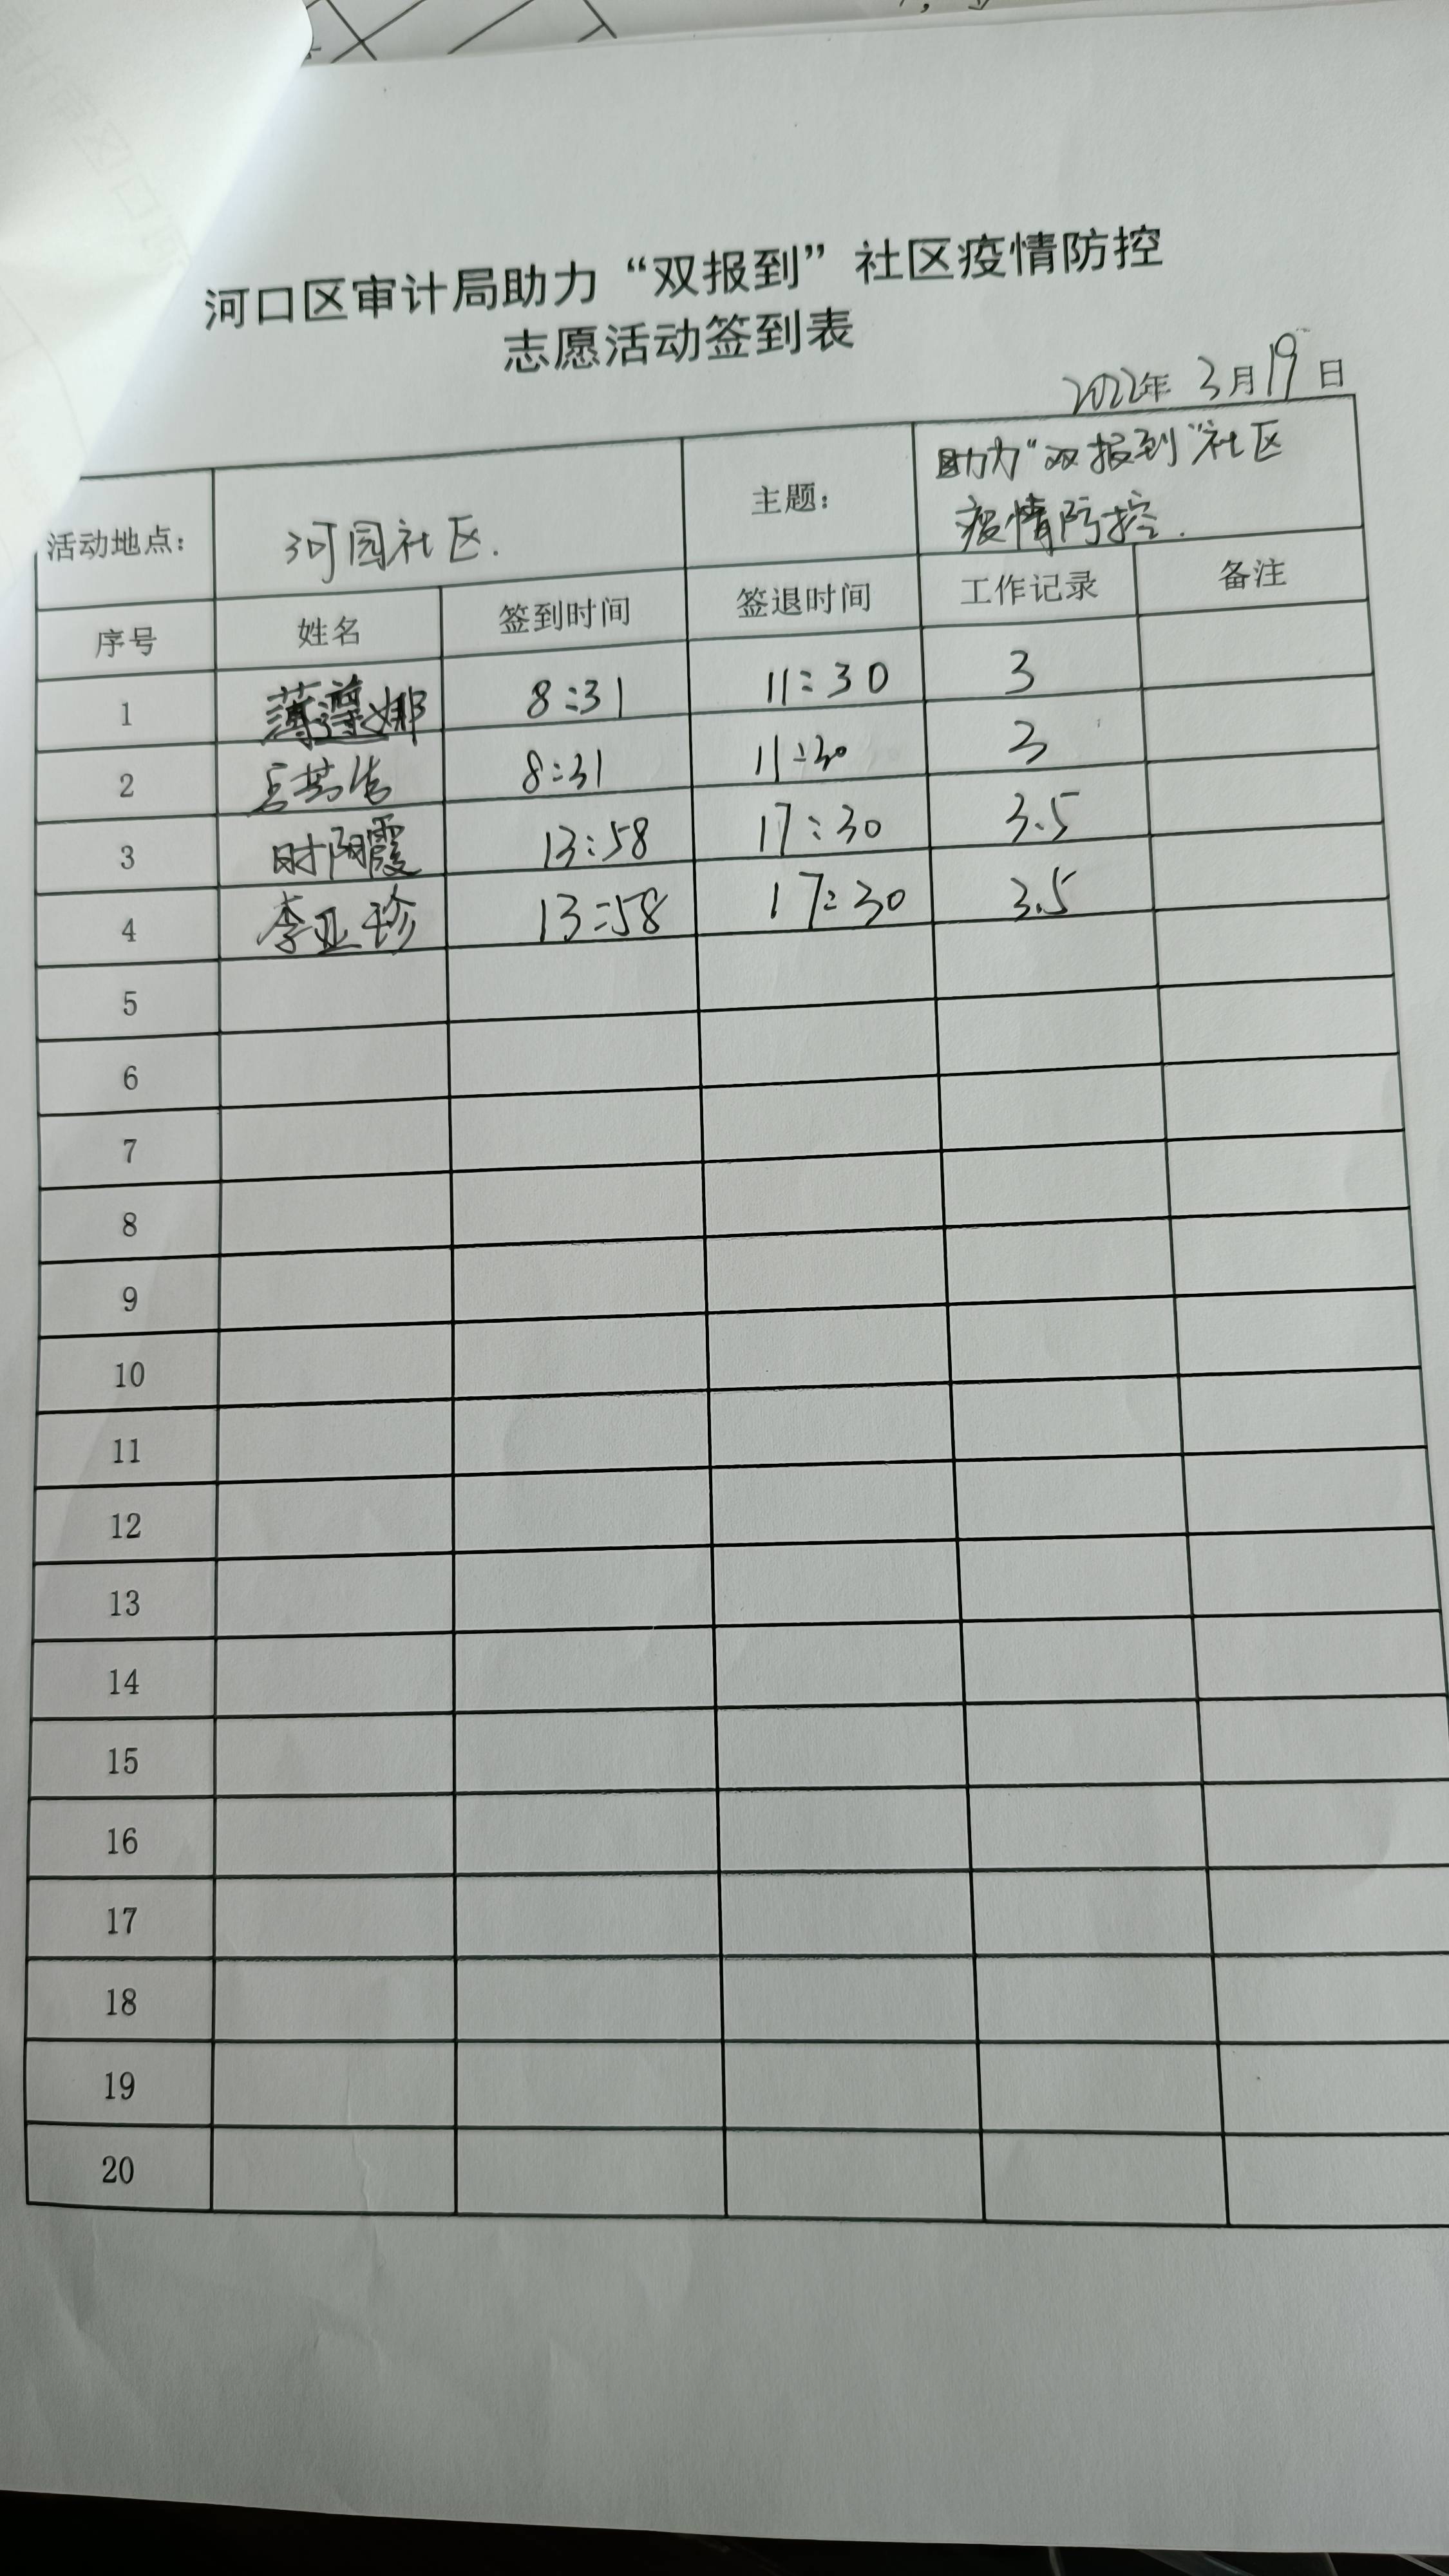 河口区审计局助力“双报到”社区疫情防控
志愿活动签到表
2022年 3月19日
活动地点： 河园社区. 主题： 助力“双报到”社区
疫情防控.
序号 姓名 签到时间 签退时间 工作记录 备注
1 8:31 11:30 3
2 8:31 11:30 3
3 时阳霞 13:58 17:30 3.5
4 李亚珍 13:58 17:30 3.5
5
6
7
8
9
10
11
12
13
14
15
16
17
18
19
20